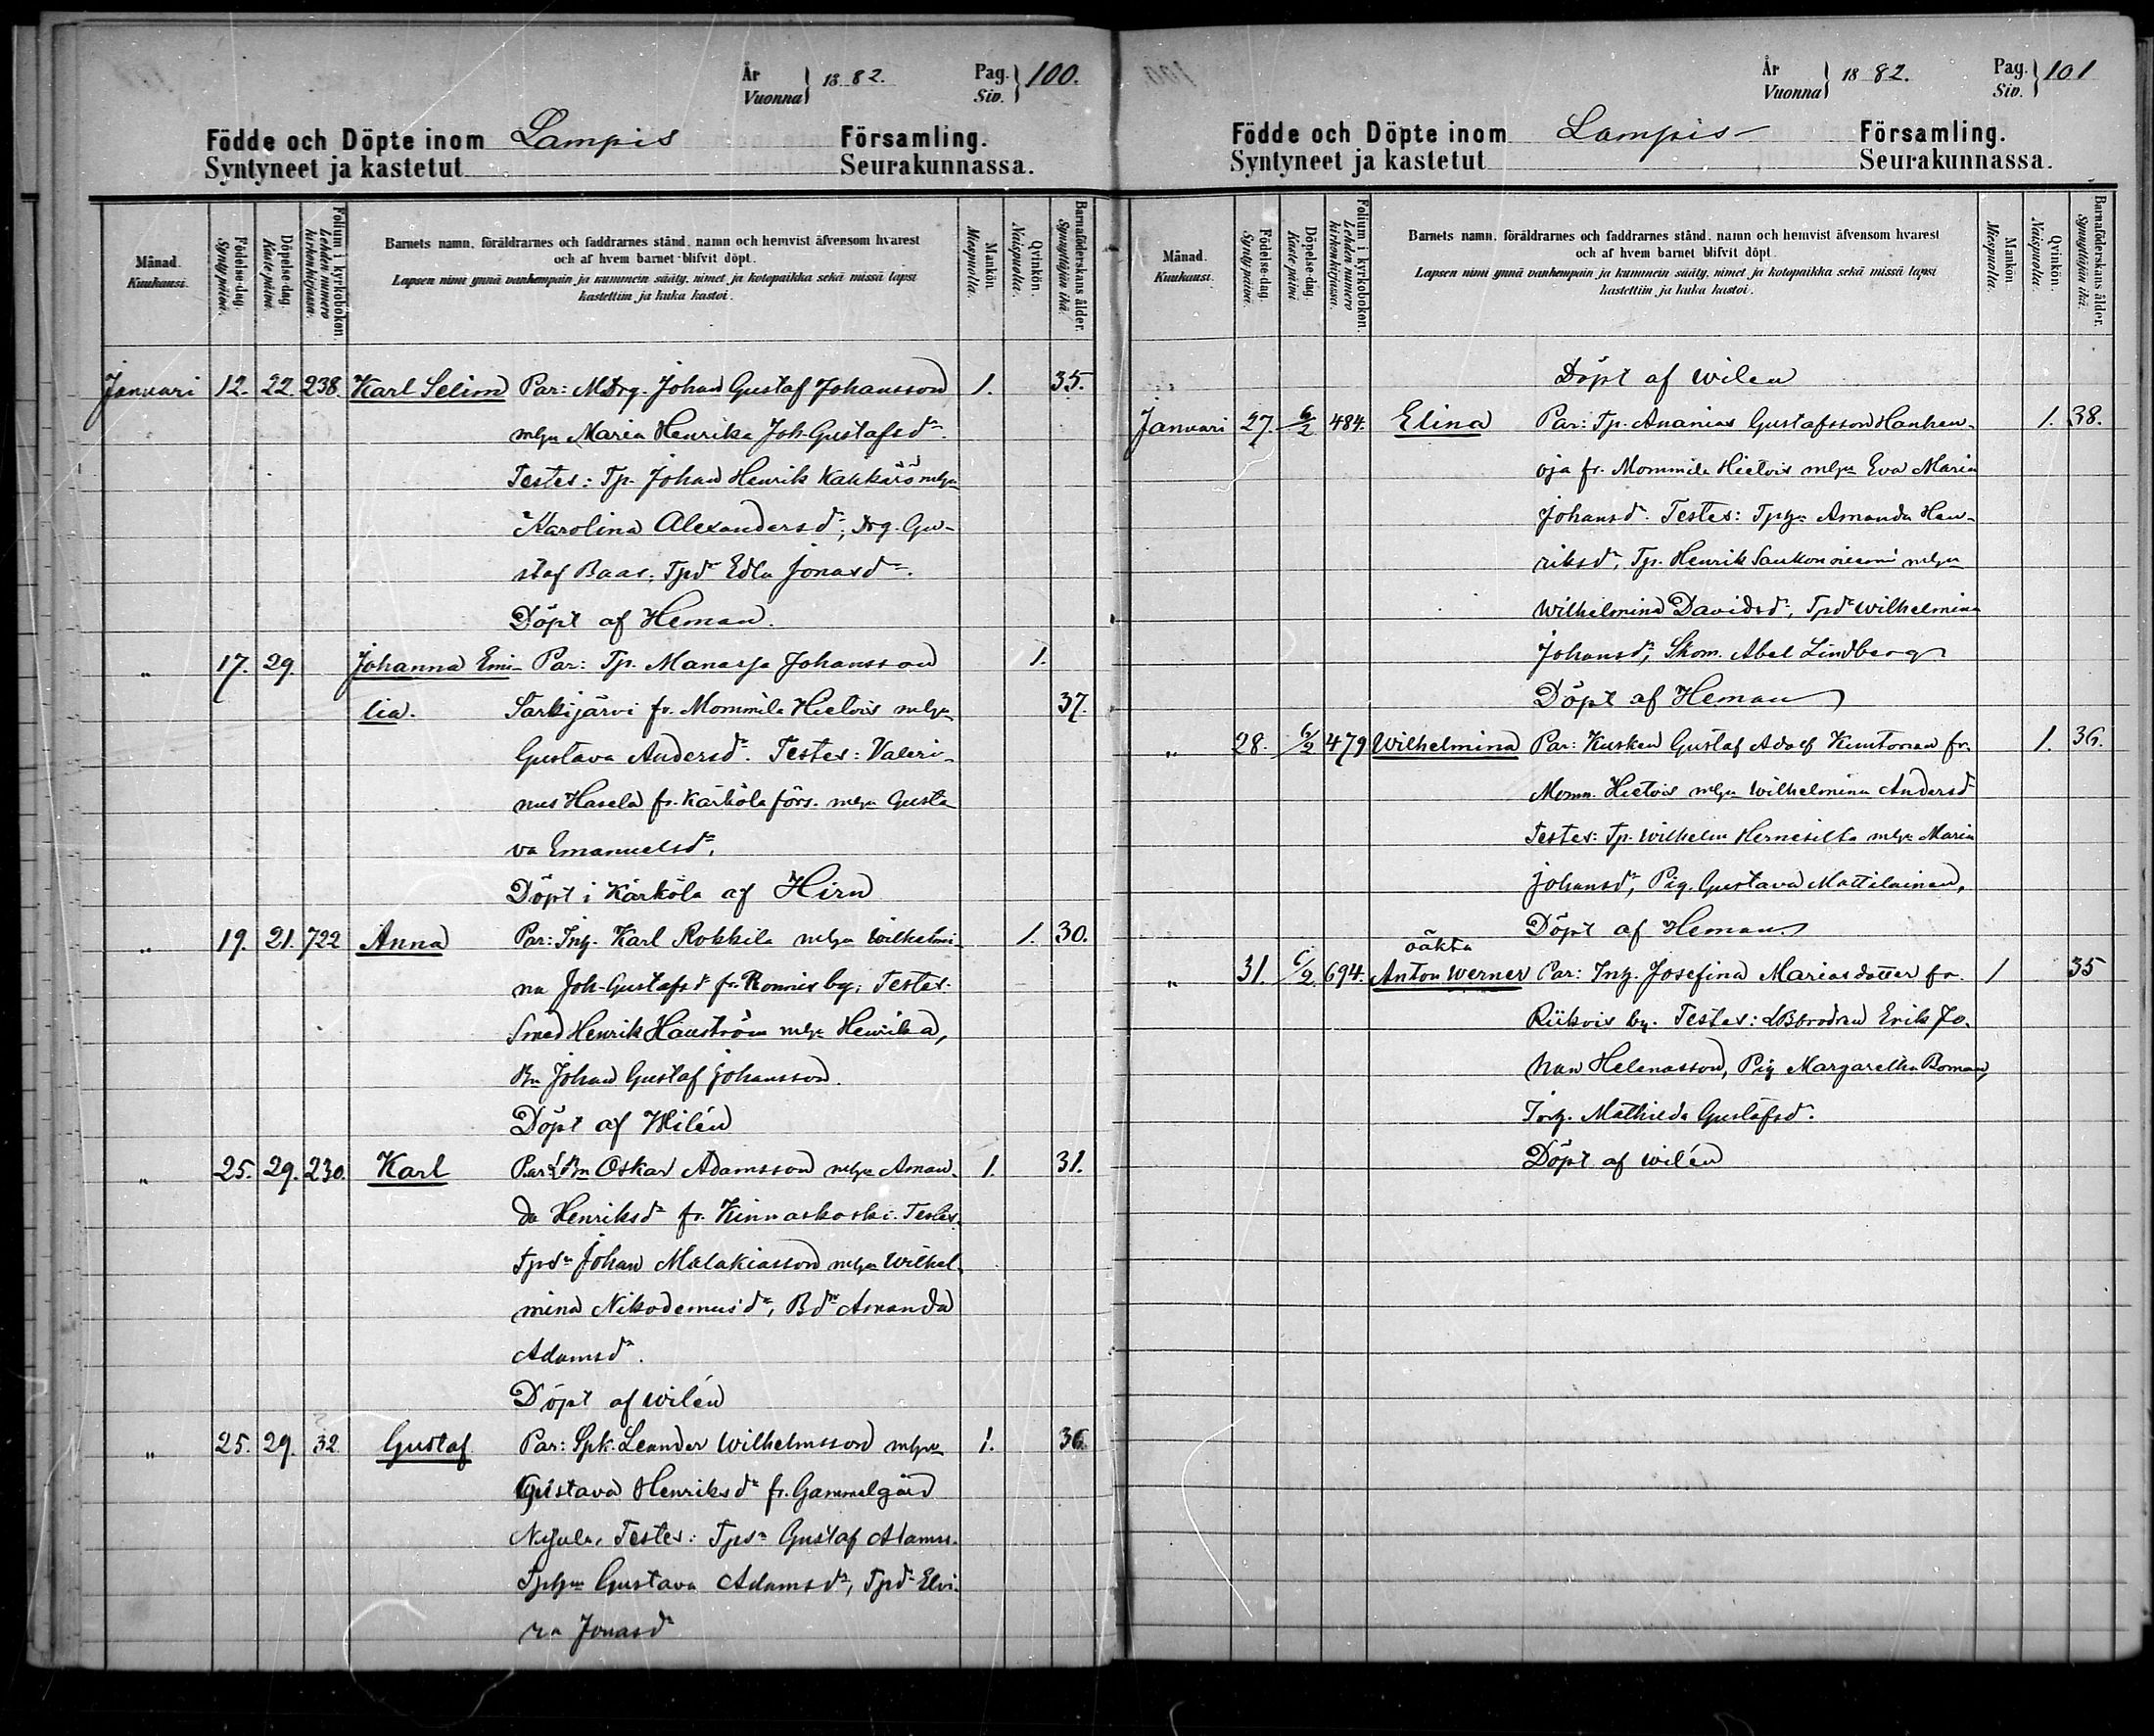 År
Vuonna } 1882. Pag.
Siv. } 100.
Födde och Döpte inom Lampis Församling.
Syntyneet ja kastetut Seurakunnassa.
Månad.
Kuukausi.
Födelse-dag.
Synty päivä.
Döpelse-dag.
Kaste päivä.
Folium i kyrkobokon.
Lehden numero
kirkonkirjassa.
Barnets namn, föräldrarnes och faddrarnes stånd, namn och hemvist äfvensom hvarest
och af hvem barnet blifvit döpt.
Lapsen nimi ynnä vanhempain ja kummein sääty, nimet ja kotopaikka sekä missä lapsi
kastettiin ja kuka kastoi.
Mankön.
Miespuolia.
Qvinkön.
Naispuolia.
Barnaföderskans ålder.
Synnyttäjän ikä.
Januari 12. 22. 238. Karl Selim Par: MDrg. Johan Gustaf Johansson 1. 35.
mhu Maria Henrika Joh-Gustafsdr.
Testes: Tp. Johan Henrik mhu
Karolina Alexandersdr, Drg. Gu-
staf Baas, Tpdr Edla Jonasdr.
Döpt af Heman.
" 17. 29. Johanna Emi- Par: Tp. Manasse Johansson 1.
lia. Särkijärvi fr. Mommila Hietois mhu 37.
Gustava Andersdr. Testes: Valeri-
nus Hasela fr. Kärkölä förs. mhu Gusta
va Emanuelsdr,
Döpt i Kärkölä af Hirn
" 19. 21. 722 Anna Par: Inh. Karl Rokkila mhu Wilhelmi- 1. 30.
na Joh-Gustafsdr fr. Ronnis by; Testes.
Smed Henrik mhu Henrika,
Bn Johan Gustaf Johansson.
Döpt af Wilén
" 25. 29. 230. Karl Par: LBn Oskar Adamsson mhu Aman- 1. 31.
da Henriksdr fr. Kinnaskoski. Testes.
Tpsn Johan Malakiasson mhu Wilhel-
mina Nikodemusdr, Bdr Amanda
Adamsdr.
Döpt af Wilén
" 25. 29. 32. Gustaf Par: Spk. Leander Wilhelmsson mhu 1. 36.
Gustava Henriksdr fr. Gammelgård
Testes: Tpsn Gustaf Adams.
Tphu Gustava Adamsdr, Tpdr Elvi-
ra Jonasdr
År
Vuonna } 1882. Pag.
Siv. } 101
Födde och Döpte inom Lampis Församling.
Syntyneet ja kastetut Seurakunnassa.
Månad.
Kuukausi.
Födelse-dag.
Synty päivä.
Döpelse-dag.
Kaste päivä.
Folium i kyrkobokon.
Lehden numero
kirkonkirjassa.
Barnets namn, föräldrarnes och faddrarnes stånd, namn och hemvist äfvensom hvarest
och af hvem barnet blifvit döpt.
Lapsen nimi ynnä vanhempain ja kummein sääty, nimet ja kotopaikka sekä missä lapsi
kastettiin ja kuka kastoi.
Mankön.
Miespuolia.
Qvinkön.
Naispuolia.
Barnaföderskans ålder.
Synnyttäjän ikä.
Döpt af Wilen
Januari 27. 6/2 484. Elina Par: Tp. Ananias Gustafsson Hanhen- 1. 38.
oja fr. Mommila Hietois mhu Eva Maria
Johansdr. Testes: Tphu Amanda Hen-
riksdr, Tp. Henrik mhu
Wilhelmina Davidsdr, Tpdr Wilhelmina
Johansdr, Skom. Abel Lindberg
Döpt af Heman
" 28. 6/2 479 Wilhelmina Par: Kusken Gustaf Adolf Kuntonen fr. 1. 36.
Momm. Hietois mhu Wilhelmina Andersdr
Testes: Tp. Wilhelm Hernesilta mhu Maria
Johansdr, Pig. Gustava Mattilainen,
Döpt af Heman
oäkta
" 31. 6/2 694. Anton Werner Par: Inh. Josefina Mariasdotter fr. 1 35
Riikois by. Testes: LBbrodren Erik Jo-
han Helenasson, Pig Margaretha Boman,
Inh. Mathilda Gustafsdr.
Döpt af Wilén